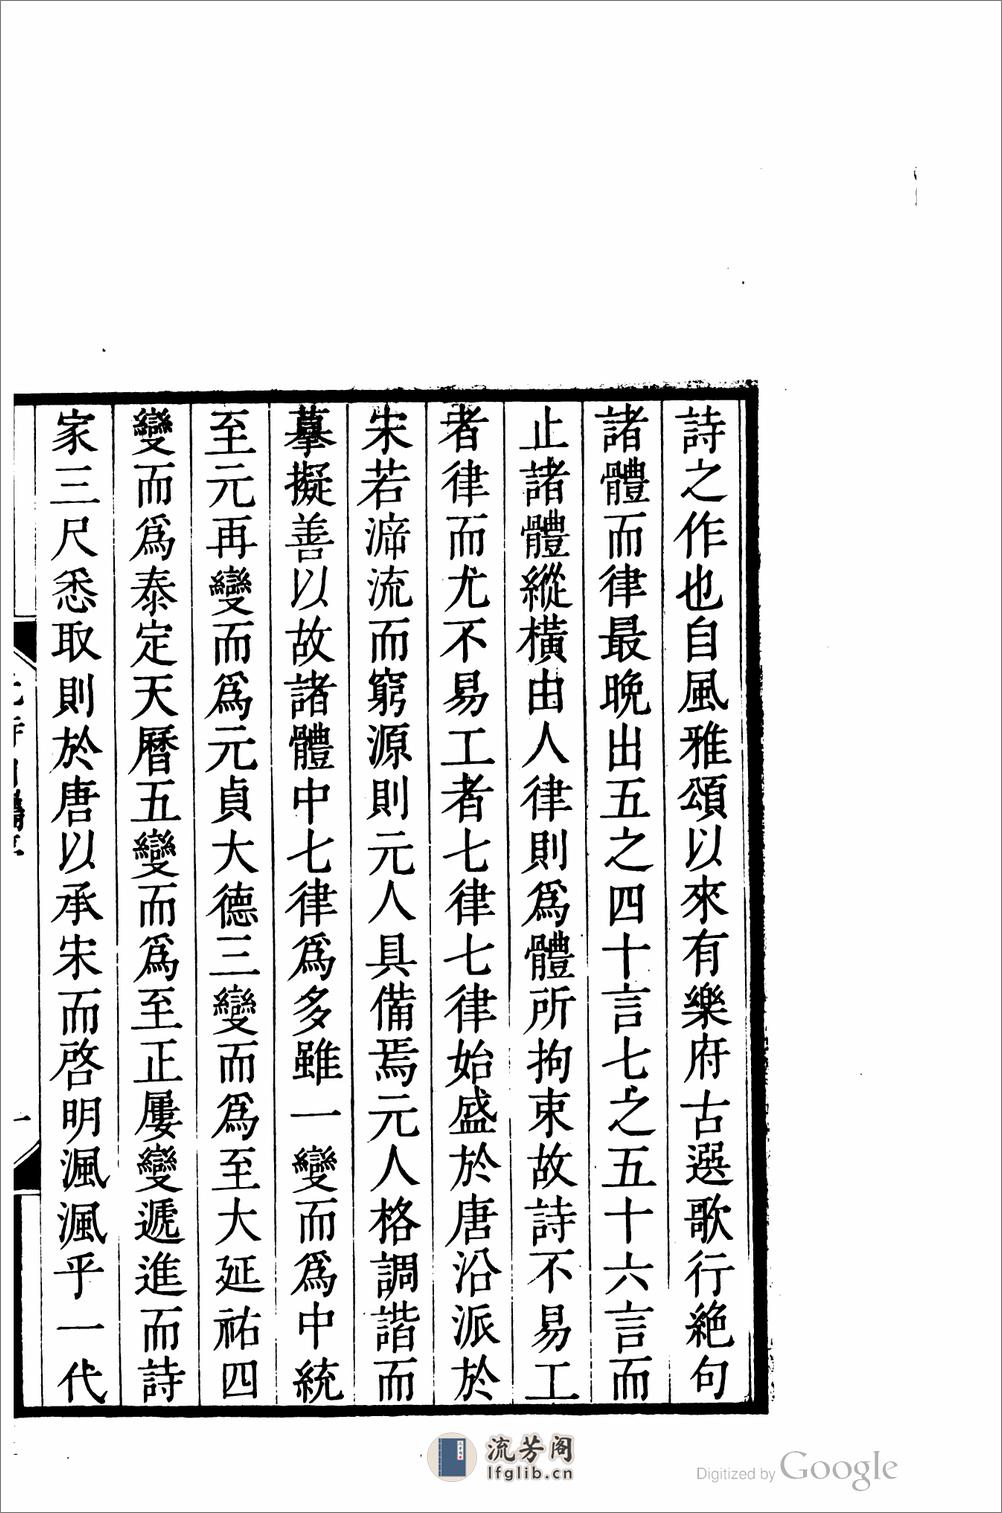 詩之作也自風雅頌以來有樂府古選歌行絶句
諸體而律最晩出五之四十言七之五十六言而
止諸體縱橫由人律則爲體所拘束故詩不易工
者律而尤不易工者七律七律始盛於唐沿派於
宋若㴑流而窮源則元人具備焉元人格調諧而
摹擬善以故諸體中七律爲多雖一變而爲中統
至元再變而爲元貞大德三變而爲至大延祐四
變而爲泰定天曆五變而爲至正屢變遞進而詩
家三尺悉取則於唐以承宋而啓明渢渢乎一代
一
流芳阁
lfglib.cn
Digitized by Google